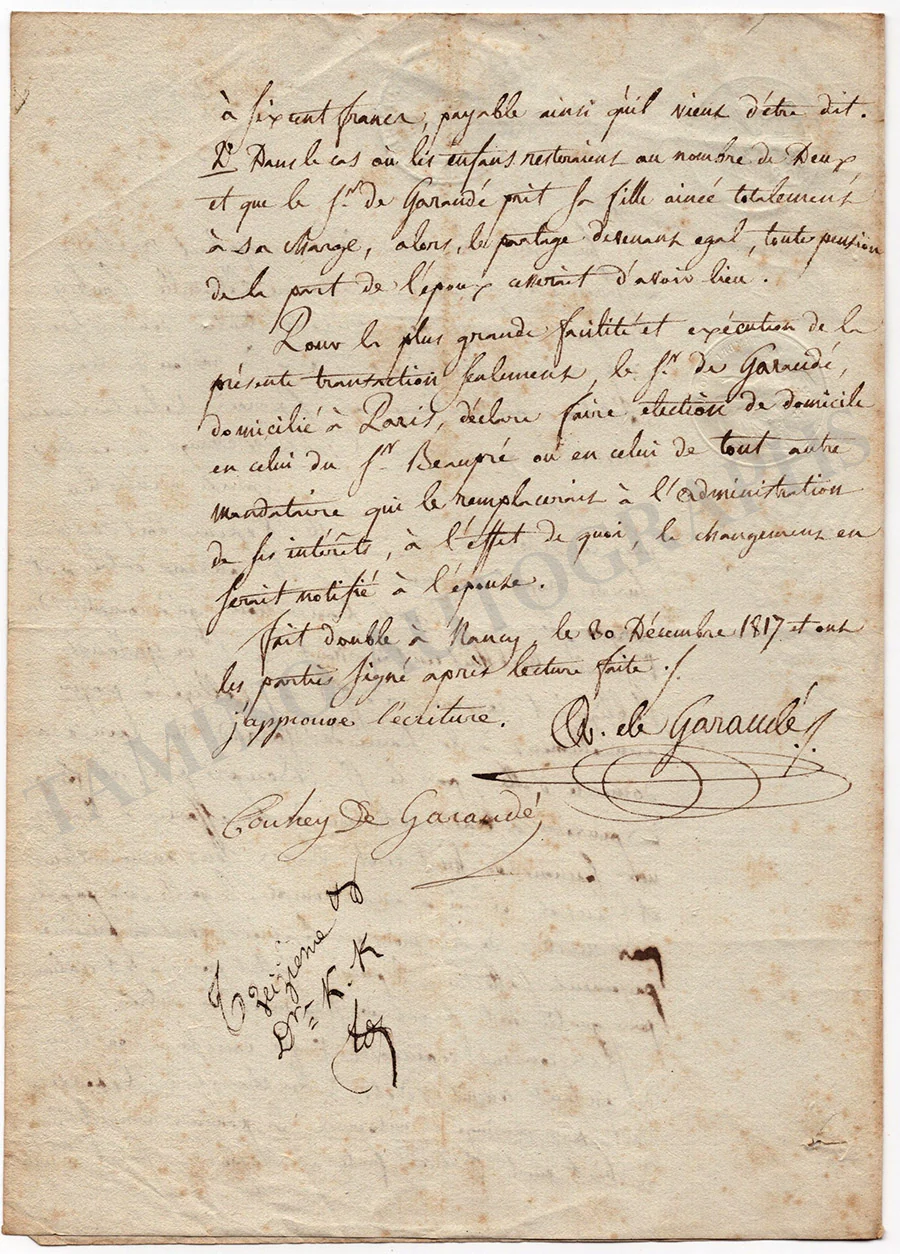 à Six cent francs, payable ainsi qu'il vient d'être dit.
2° Dans le cas où les enfans resteraient au nombre de Deux,
et que le Sr. de Garaudé prit sa fille ainée totalement
à sa charge, alors, le partage devenant egal, toute pension
de la part de l'époux cesserait d'avoir lieu.
Pour la plus grande facilité et exécution de la
présente transaction seulement, le Sr. de Garaudé,
domicilié à Paris, déclare faire élection de domicile
en celui du Sr. Beaupré ou en celui de tout autre
mandataire qui le remplacerait à l'administration
de ses intérêts, à l'effet de quoi, le changement en
serait notifié à l'épouse.
fait double à Nancy, le 30 Décembre 1817 et ont
les parties signé après lecture faite ./.
j'approuve l'écriture.
A. de Garaudé
Couhey De Garaudé
TAMINO AUTOGRAPHS